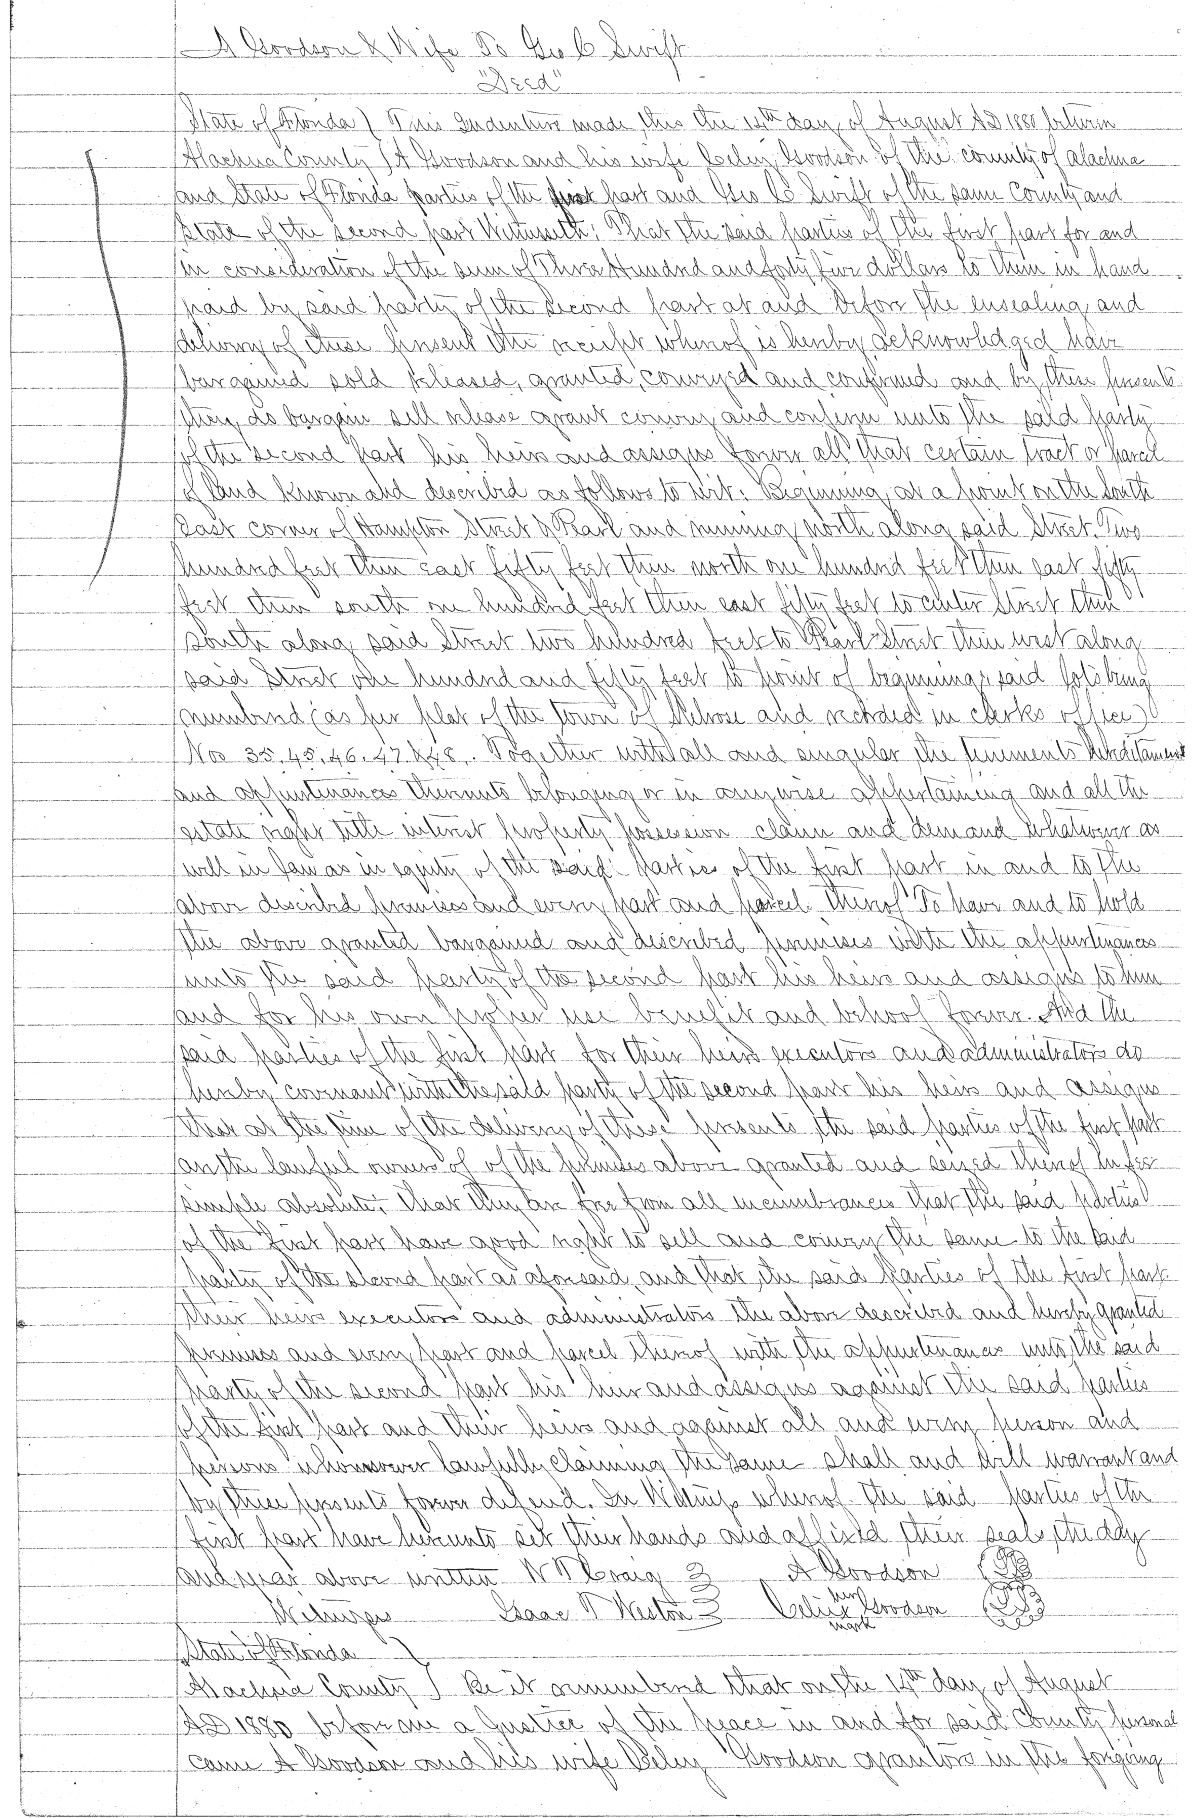 A Goodson & Wife To Geo C Swift
"Deed"
State of Florida ) This Indenture made this the 14th day of August AD 1880 between
Alachua County ) A Goodson and his wife Celey Goodson of the county of Alachua
and State of Florida parties of the first part and Geo C Swift of the same County and
State of the second part Witnesseth; That the said parties of the first part for and
in consideration of the sum of Three Hundred and forty five dollars to them in hand
paid by said party of the second part at and before the ensealing and
delivery of these present the receipt whereof is hereby acknowledged have
bargained sold released, granted, conveyed and confirmed and by these presents
they do bargain sell release grant convey and confirm unto the said party
of the second part his heirs and assigns forever all that certain tract or parcel
of land known and described as follows to wit: Beginning at a point on the South
East corner of Hampton Street & Pearl and running north along said Street. Two
hundred feet then east fifty feet then north one hundred feet then east fifty
feet then south one hundred feet then east fifty feet to center Street then
south along said Street two hundred feet to Pearl Street then west along
said Street one hundred and fifty feet to point of beginning, said lots being
numbered (as per plat of the town of Melrose and recorded in clerks office)
Nos 35, 45, 46, 47 & 48. Together with all and singular the tenements hereditaments
and appurtenances thereunto belonging or in anywise appertaining and all the
estate right title interest property possession claim and demand whatsoever as
well in law as in equity of the said parties of the first part in and to the
above described premises and every part and parcel thereof To have and to hold
the above granted bargained and described premises with the appurtenances
unto the said party of the second part his heirs and assigns to him
and for his own proper use benefit and behoof forever. And the
said parties of the first part for their heirs executors and administrators do
hereby covenant with the said party of the second part his heirs and assigns
that at the time of the delivery of these presents the said parties of the first part
are the lawful owners of of the premises above granted and seized thereof in fee
simple absolute; that they are free from all incumbrances that the said parties
of the first part have good right to sell and convey the same to the said
party of the second part as aforesaid, and that, the said parties of the first part
their heirs executors and administrators the above described and hereby granted
premises and every part and parcel thereof with the appurtenances unto the said
party of the second part his heirs and assigns against the said parties
of the first part and their heirs and against all and every person and
persons whomsoever lawfully claiming the same shall and will warrant and
by these presents forever defend. In Witness whereof the said parties of the
first part have hereunto set their hands and affixed their seals the day
and year above written W T Craig A Goodson
Witnesses Isaac T Weston Celey her x mark Goodson
State of Florida )
Alachua County ) Be it remembered that on the 14th day of August
AD 1880 before me a Justice of the peace in and for said County personal
came A Goodson and his wife Celey Goodson grantors in the forgoing